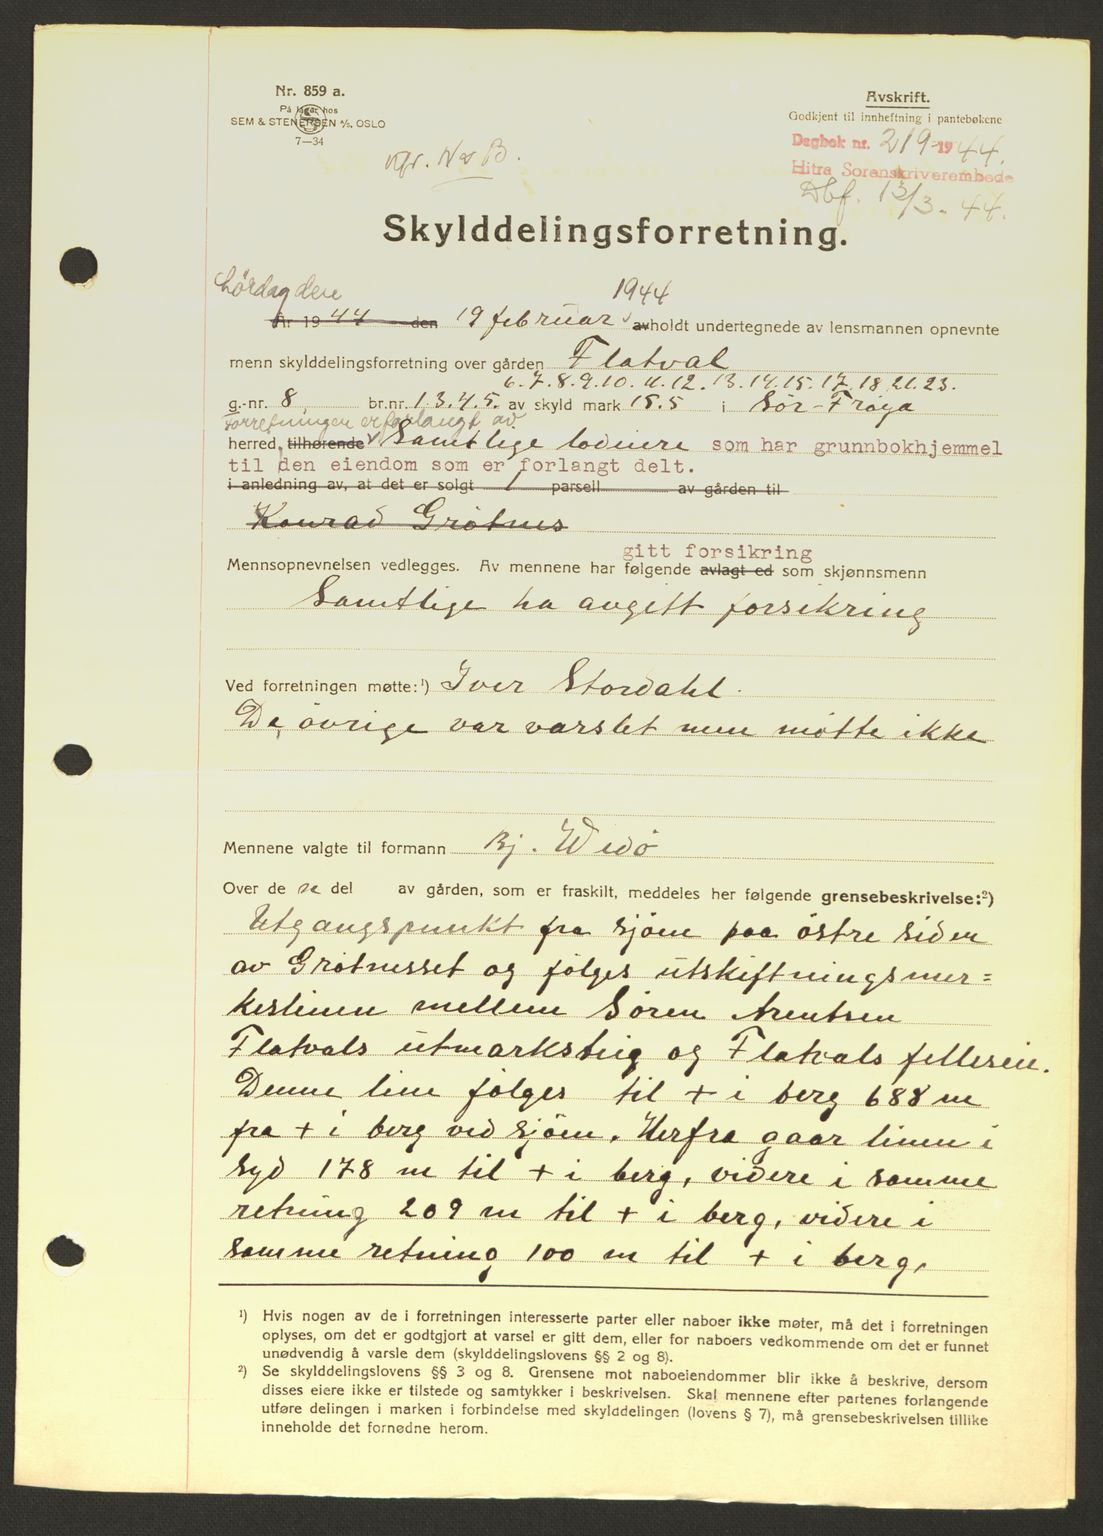 Nr. 859 a.
På lager hos
SEM & STENERSEN A/S, OSLO
7—34
Avskrift.
Godkjent til innheftning i pantebøkene
Dagbok nr. 219-1944.
Hitra Sorenskriverembede
Dbf. 13/3-44.
Skylddelingsforretning.
Lördag den
1944
År 1944 den 19 februar avholdt undertegnede av lensmannen opnevnte
menn skylddelingsforretning over gården Flatval
6.7.8.9.10.11.12.13.14.15.17.18.21.23.
g.-nr. 8 br.nr. 1.3.4.5. av skyld mark 15.5 i Sör-Fröya
Forretningen er forlangt av
herred, tilhørende Samtlige lodeiere som har grunnbokhjemmel
til den eiendom som er forlangt delt.
i anledning av, at det er solgt 1 parsell av gården til
Konrad Grötnes
gitt forsikring
Mennsopnevnelsen vedlegges. Av mennene har følgende avlagt ed som skjønnsmenn
Samtlige ha avgitt forsikring
Ved forretningen møtte:¹) Iver Stordahl.
De övrige var varslet men mötte ikke
Mennene valgte til formann Bj. Widö
Over de n del av gården, som er fraskilt, meddeles her følgende grensebeskrivelse:²)
Utgangspunkt fra sjöen paa östre siden
av Grötnesset og fölges utskiftningsmer=
keslinen mellem Sören Arentsen
Flatvals utmarksteig og Flatvals felleseie.
Denne line fölges til + i berg 688 m
fra + i berg ved sjöen. Herfra gaar linen i
syd 178 m til + i berg, videre i samme
retning 209 m til + i berg, videre i
samme retning 100 m til + i berg,
¹) Hvis nogen av de i forretningen interesserte parter eller naboer ikke møter, må det i forretningen
oplyses, om det er godtgjort at varsel er gitt dem, eller for naboers vedkommende om det er funnet
unødvendig å varsle dem (skylddelingslovens §§ 2 og 8).
²) Se skylddelingslovens §§ 3 og 8. Grensene mot naboeiendommer blir ikke å beskrive, dersom
disses eiere ikke er tilstede og samtykker i beskrivelsen. Skal mennene efter partenes forlangende
utføre delingen i marken i forbindelse med skylddelingen (lovens § 7), må grensebeskrivelsen tillike
inneholde det fornødne herom.